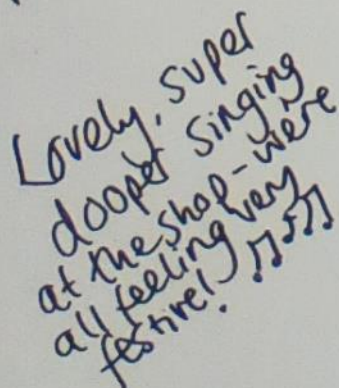 Lovely, super
dooper singing
at the shop - were
all feeling very
festive! ♫♪♫